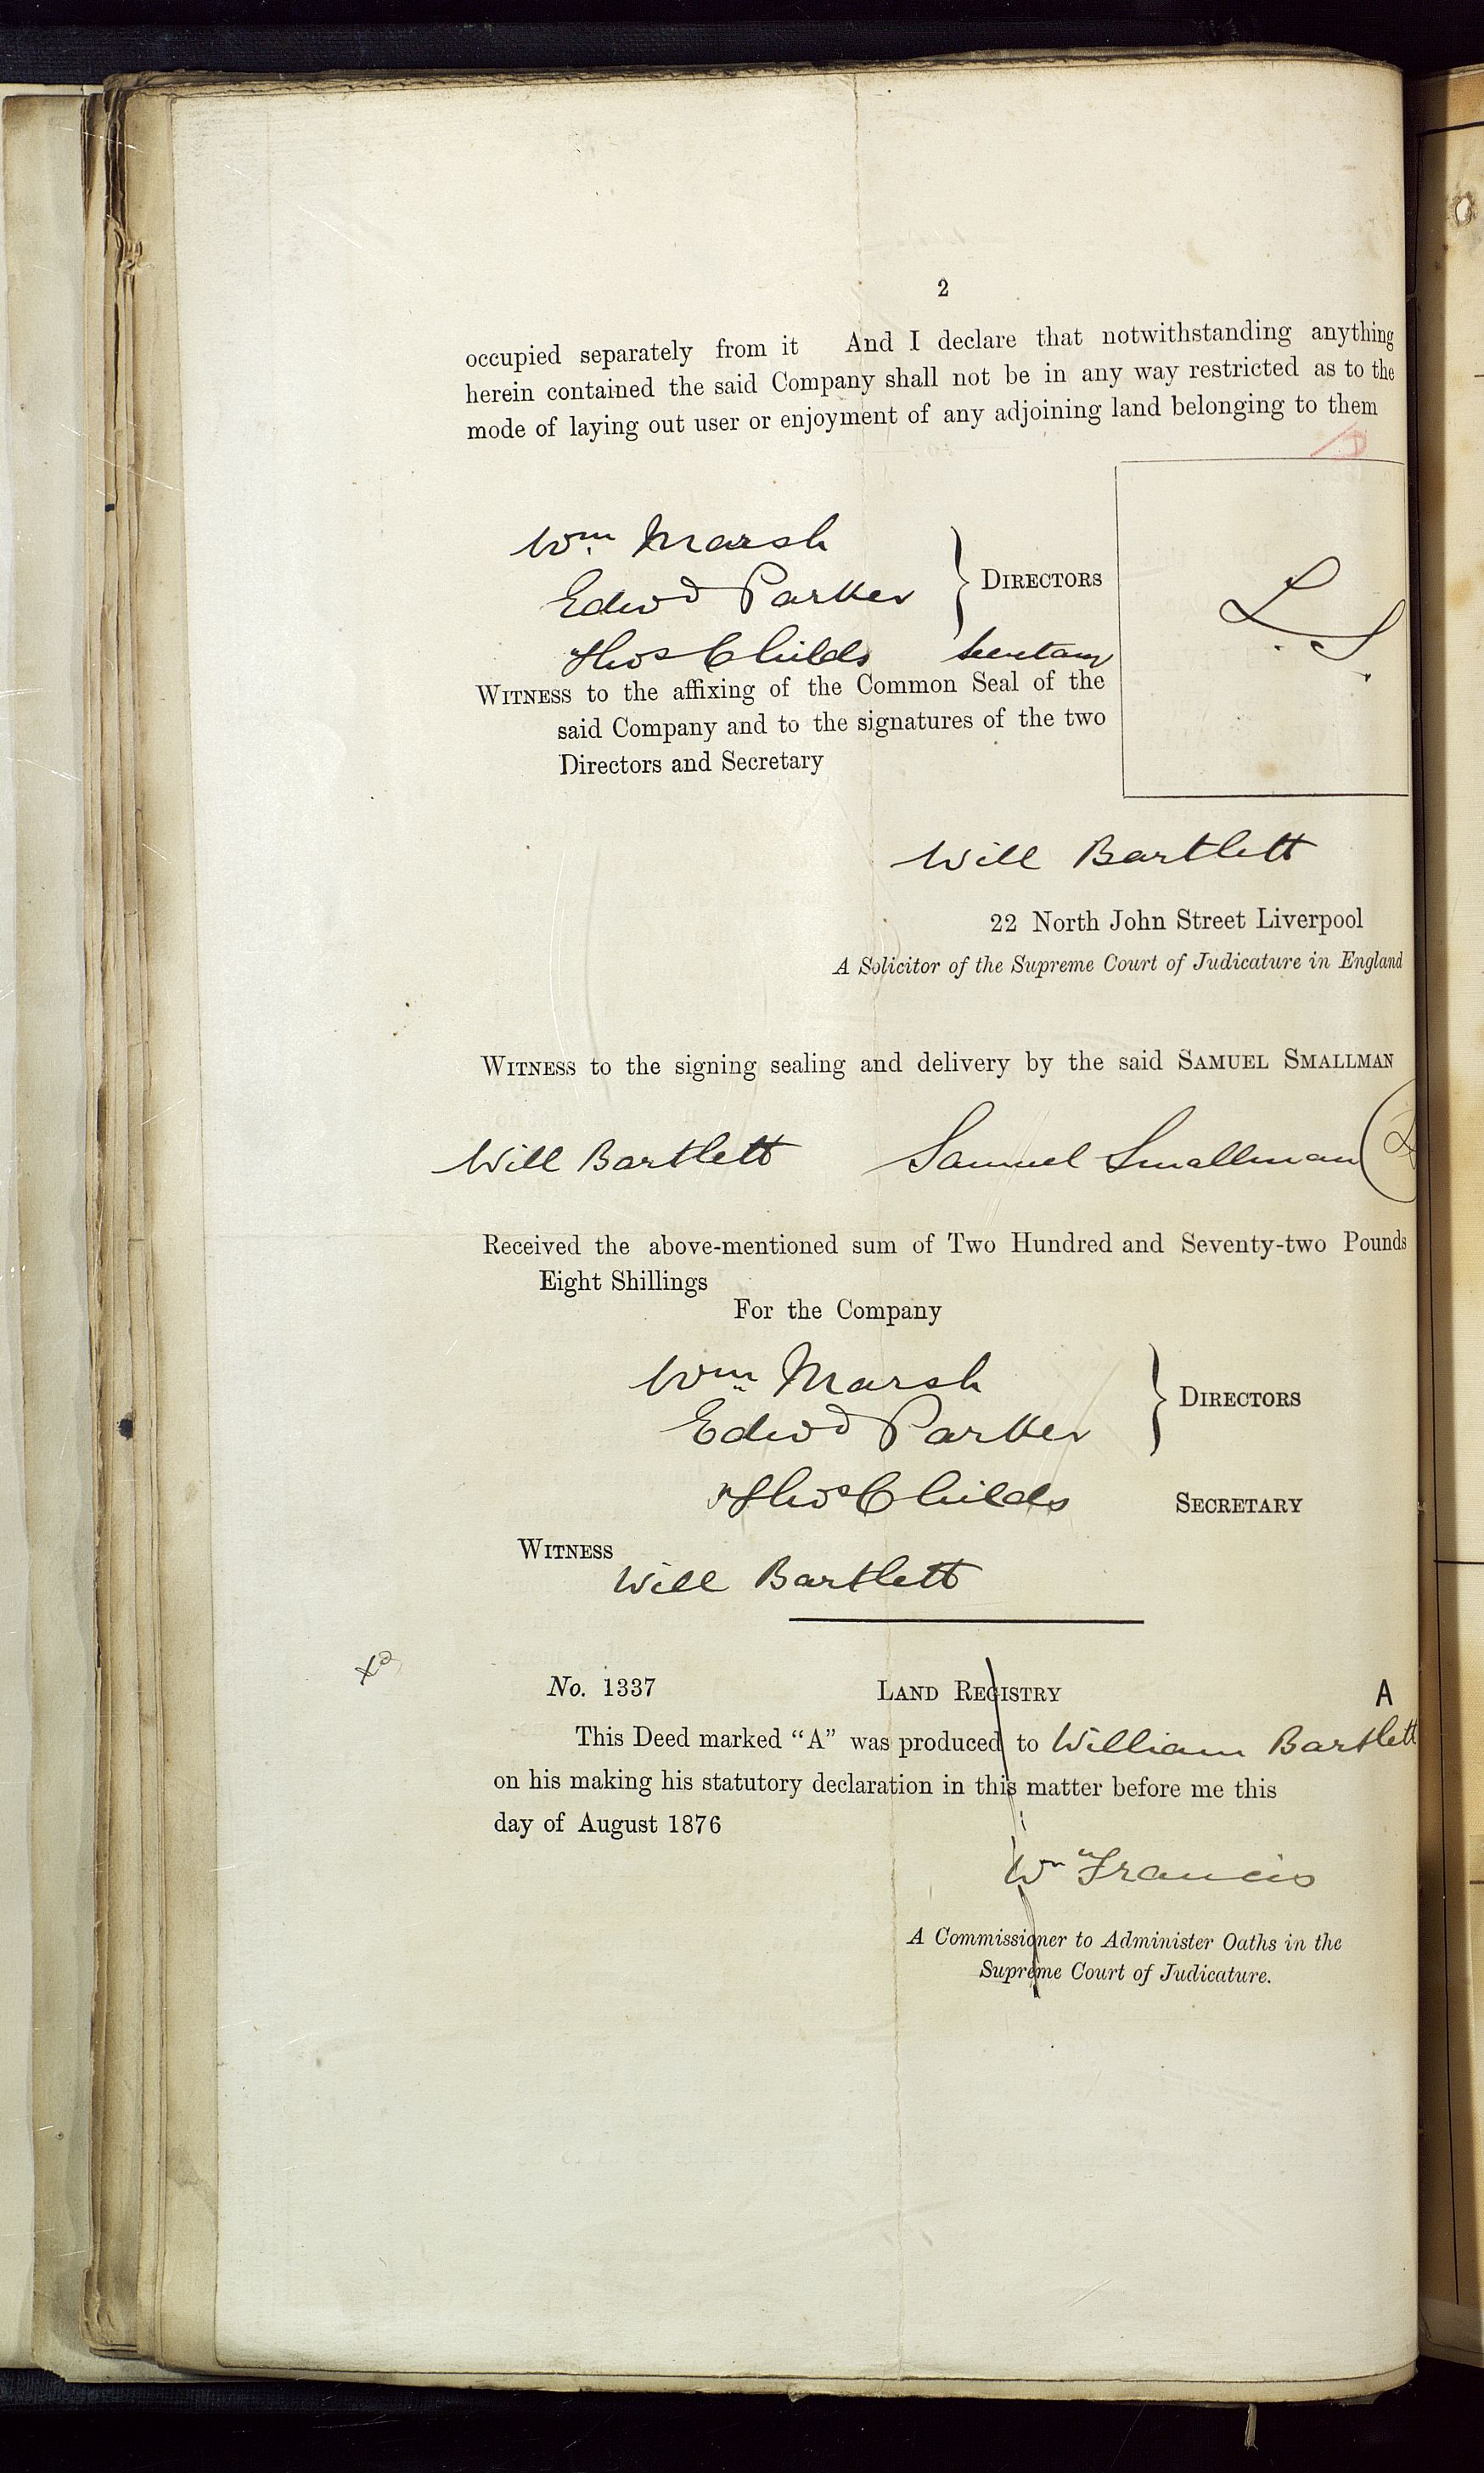 2
occupied separately from it And I declare that notwithstanding anything
herein contained the said Company shall not be in any way restricted as to the
mode of laying out user or enjoyment of any adjoining land belonging to them
Wm. Marsh
Edwd Parker
DIRECTORS
L.S.
Thos Childs Secretary
WITNESS to the affixing of the Common Seal of the
said Company and to the signatures of the two
Directors and Secretary
Will Bartlett
22 North John Street Liverpool
A Solicitor of the Supreme Court of Judicature in England
WITNESS to the signing sealing and delivery by the said SAMUEL SMALLMAN
Will Bartlett Samuel Smallman
Received the above-mentioned sum of Two Hundred and Seventy-two Pounds
Eight Shillings
For the Company
Wm Marsh
Edwd Parker
DIRECTORS
Thos Childs SECRETARY
WITNESS
Will Bartlett
No. 1337 LAND REGISTRY A
This Deed marked “A” was produced to William Bartlett
on his making his statutory declaration in this matter before me this
day of August 1876
Wm Francis
A Commissioner to Administer Oaths in the
Supreme Court of Judicature.